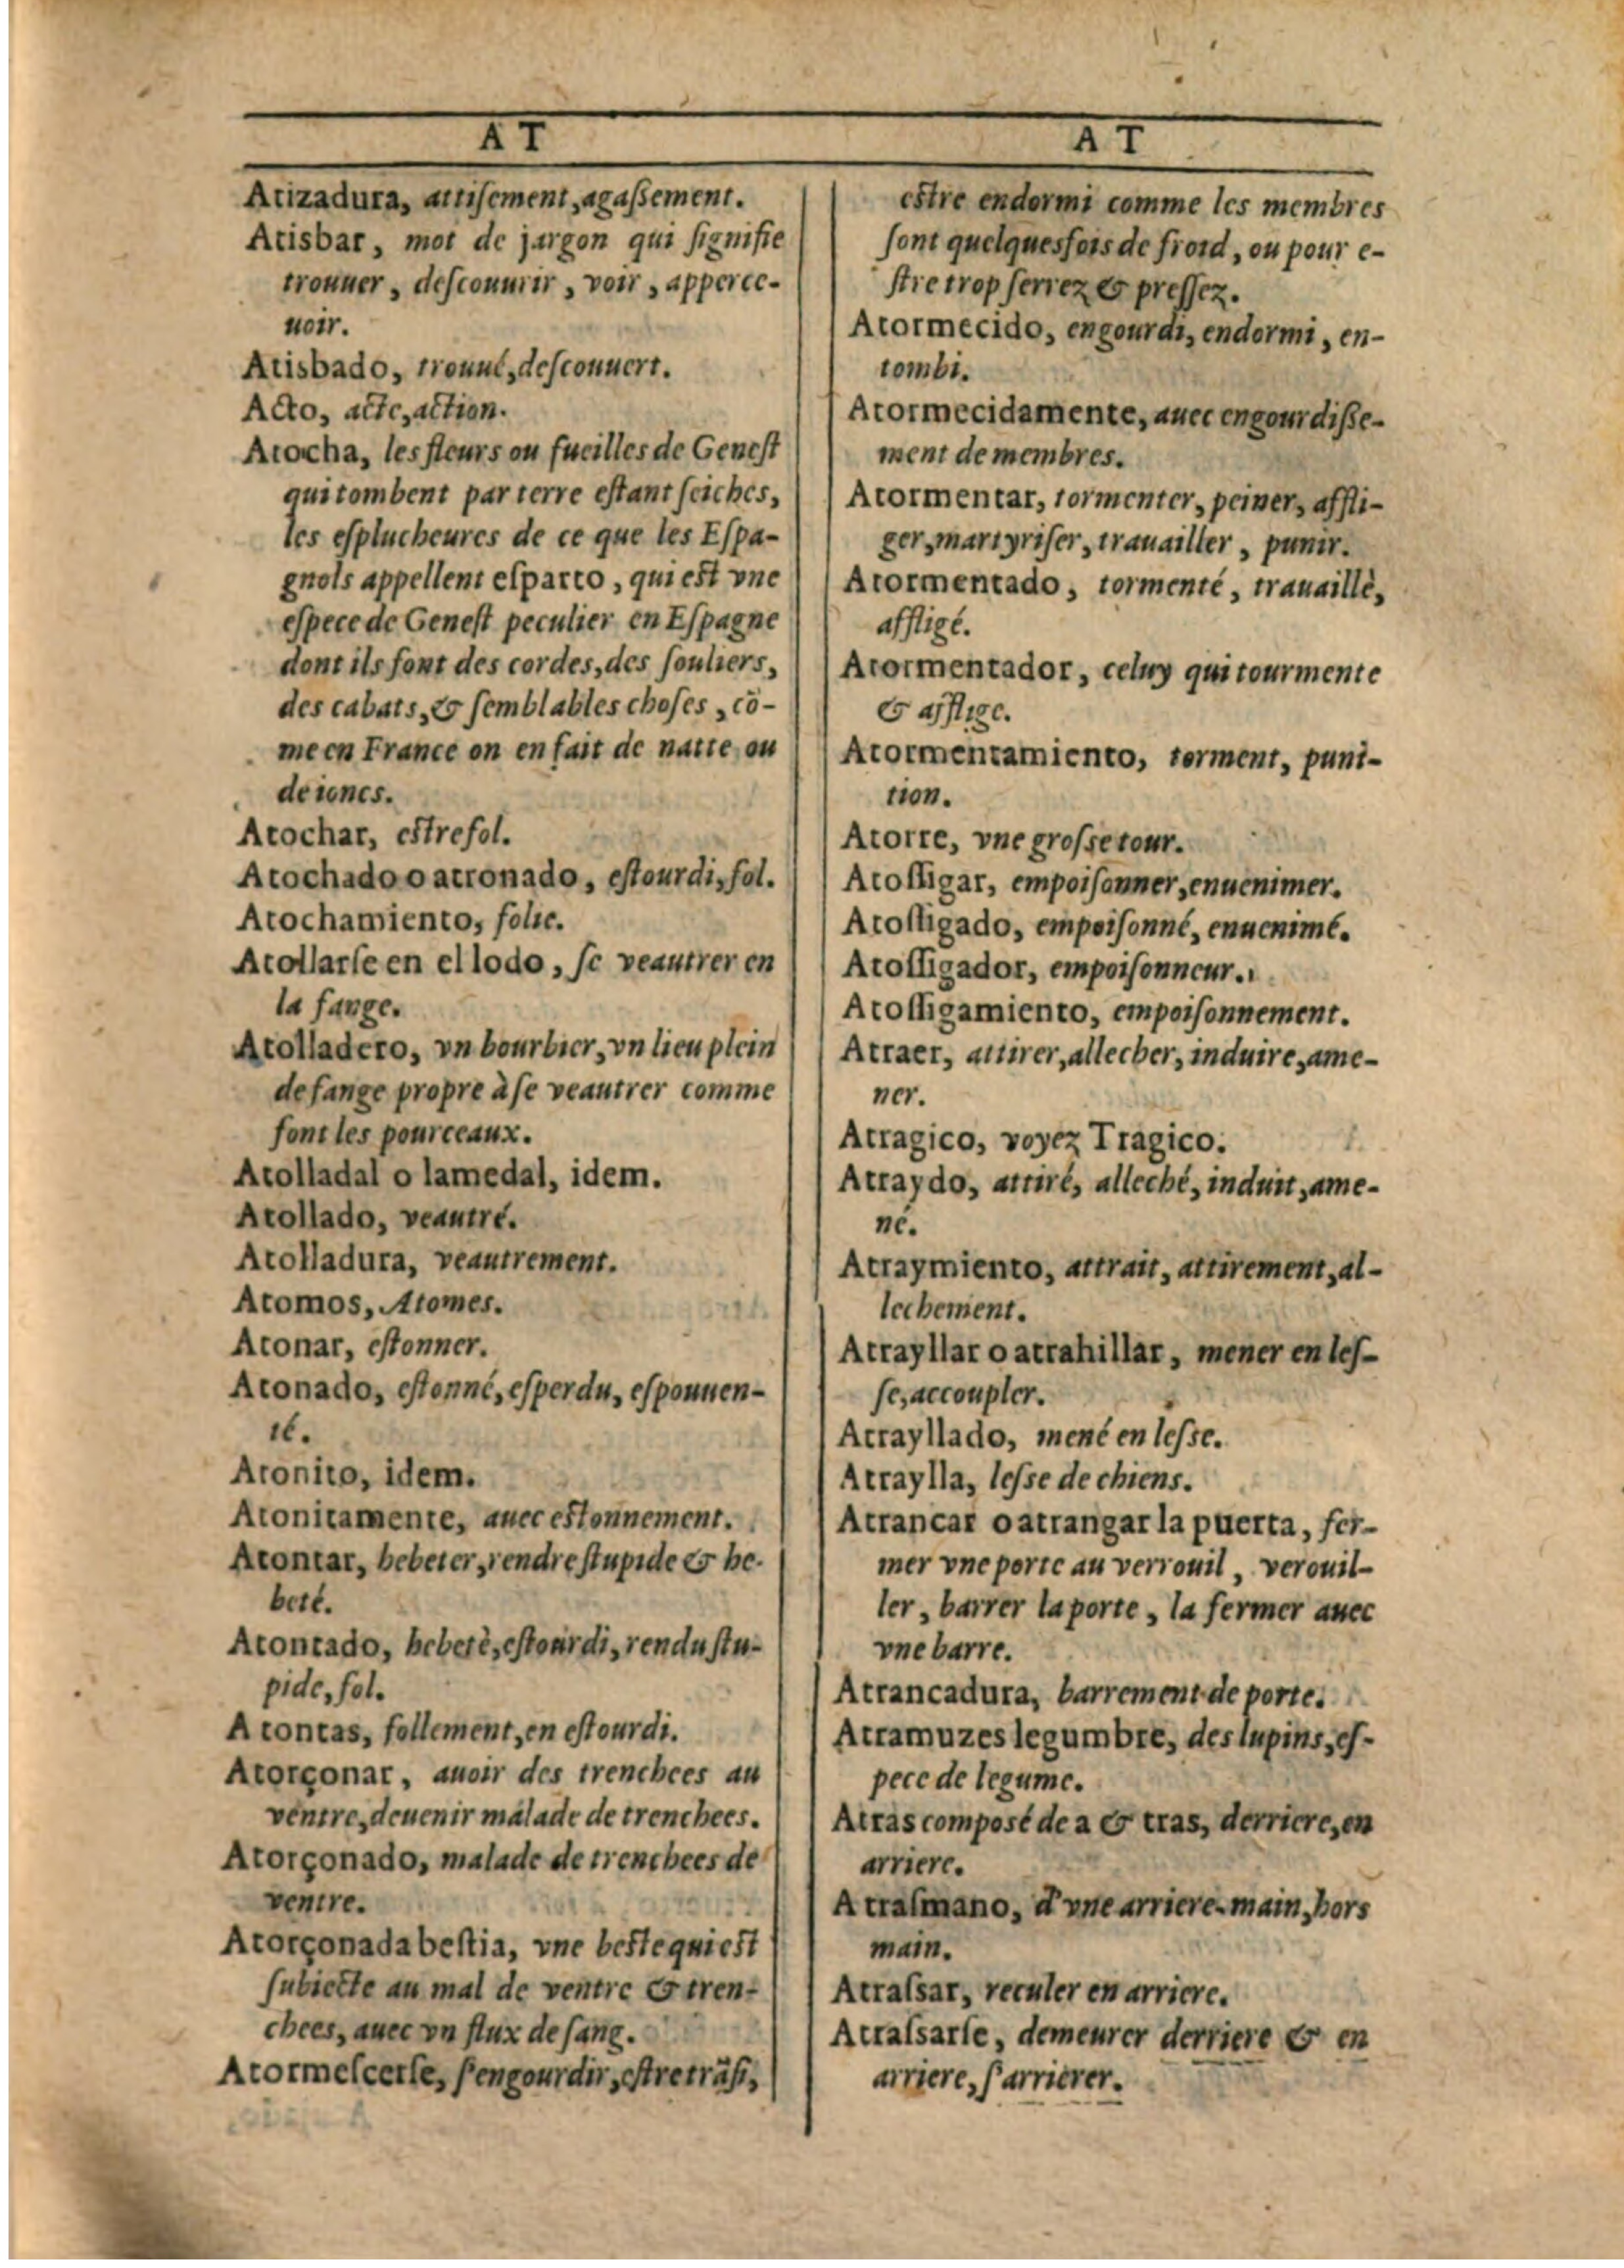 A T
Atizadura, attiſement, agaſſement.
Atisbar, mot de jargon qui ſignifie
trouuer, deſcouurir, voir, apperce-
uoir.
Atisbado, trouué, deſcouuert.
Acto, acte, action.
Atocha, les fleurs ou fueilles de Geneſt
qui tombent par terre eſtant ſeiches,
les eſplucheures de ce que les Eſpa-
gnols appellent eſparto, qui eſt vne
eſpece de Geneſt peculier en Eſpagne
dont ils font des cordes, des ſouliers,
des cabats, & ſemblables choſes, cõ-
me en France on en fait de natte ou
de ioncs.
Atochar, eſtre fol.
Atochado o atronado, eſtourdi, fol.
Atochamiento, folie.
Atollarſe en el lodo, ſe veautrer en
la fange.
Atolladero, vn bourbier, vn lieu plein
de fange propre à ſe veautrer comme
font les pourceaux.
Atolladal o lamedal, idem.
Atollado, veautré.
Atolladura, veautrement.
Atomos, Atomes.
Atonar, eſtonner.
Atonado, eſtonné, eſperdu, eſpouuen-
té.
Atonito, idem.
Atonitamente, auec eſtonnement.
Atontar, hebeter, rendre ſtupide & he-
beté.
Atontado, hebetè, eſtourdi, rendu ſtu-
pide, fol.
A tontas, follement, en eſtourdi.
Atorçonar, auoir des trenchees au
ventre, deuenir malade de trenchees.
Atorçonado, malade de trenchees de
ventre.
Atorçonada beſtia, vne beſte qui eſt
ſubiecte au mal de ventre & tren-
chees, auec vn flux de ſang.
Atormeſcerſe, ſ'engourdir, eſtre trãſi,
A T
eſtre endormi comme les membres
ſont quelquesfois de froid, ou pour e-
ſtre trop ſerrez & preſſez.
Atormecido, engourdi, endormi, en-
tombi.
Atormecidamente, auec engourdiſſe-
ment de membres.
Atormentar, tormenter, peiner, affli-
ger, martyriſer, trauailler, punir.
Atormentado, tormenté, trauaillè,
affligé.
Atormentador, celuy qui tourmente
& afflige.
Atormentamiento, torment, puni-
tion.
Atorre, vne groſſe tour.
Atoſſigar, empoiſonner, enuenimer.
Atoſſigado, empoiſonné, enuenimé.
Atoſſigador, empoiſonneur.
Atoſſigamiento, empoiſonnement.
Atraer, attirer, allecher, induire, ame-
ner.
Atragico, voyez Tragico.
Atraydo, attiré, alleché, induit, ame-
né.
Atraymiento, attrait, attirement, al-
lechement.
Atrayllar o atrahillar, mener en leſ-
ſe, accoupler.
Atrayllado, mené en leſſe.
Atraylla, leſſe de chiens.
Atrancar o atrangar la puerta, fer-
mer vne porte au verrouil, verouil-
ler, barrer la porte, la fermer auec
vne barre.
Atrancadura, barrement de porte.
Atramuzes legumbre, des lupins, eſ-
pece de legume.
Atras compoſé de a & tras, derriere, en
arriere.
A traſmano, d'vne arriere-main, hors
main.
Atraſsar, reculer en arriere.
Atraſsarſe, demeurer derriere & en
arriere, ſ'arrierer.